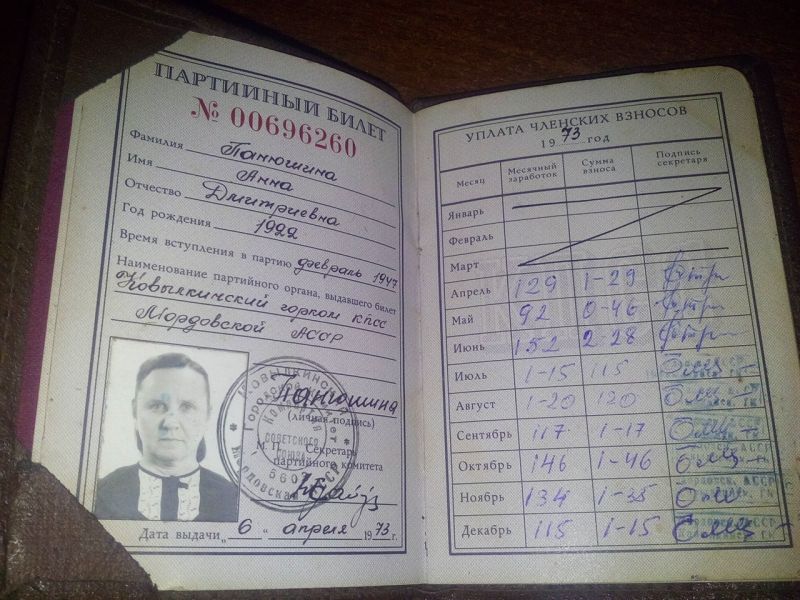 ПАРТИЙНЫЙ БИЛЕТ
№ 00696260
Фамилия Панюшина
Имя Анна
Отчество Дмитриевна
Год рождения 1922
Время вступления в партию февраль 1947
Наименование партийного органа, выдавшего билет
Ковылкинский горком КПСС
Мордовской АССР
Панюшина
(личная подпись)
М. П. Секретарь
партийного комитета
Дата выдачи „6“ апреля 1973 г.
УПЛАТА ЧЛЕНСКИХ ВЗНОСОВ
1973 ГОД
Месяц Месячный заработок Сумма взноса Подпись секретаря
Январь
Февраль
Март
Апрель 129 1-29
Май 92 0-46
Июнь 152 2-28
Июль 1-15 115
Август 1-20 120
Сентябрь 117 1-17
Октябрь 146 1-46
Ноябрь 134 1-35
Декабрь 115 1-15